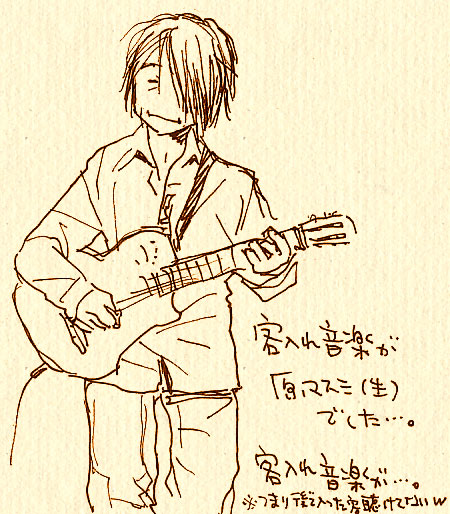 客入れ音楽が
「原マスミ(生)
でした…。
客入れ音楽が…。
※つまり後で入った客聴けてないw